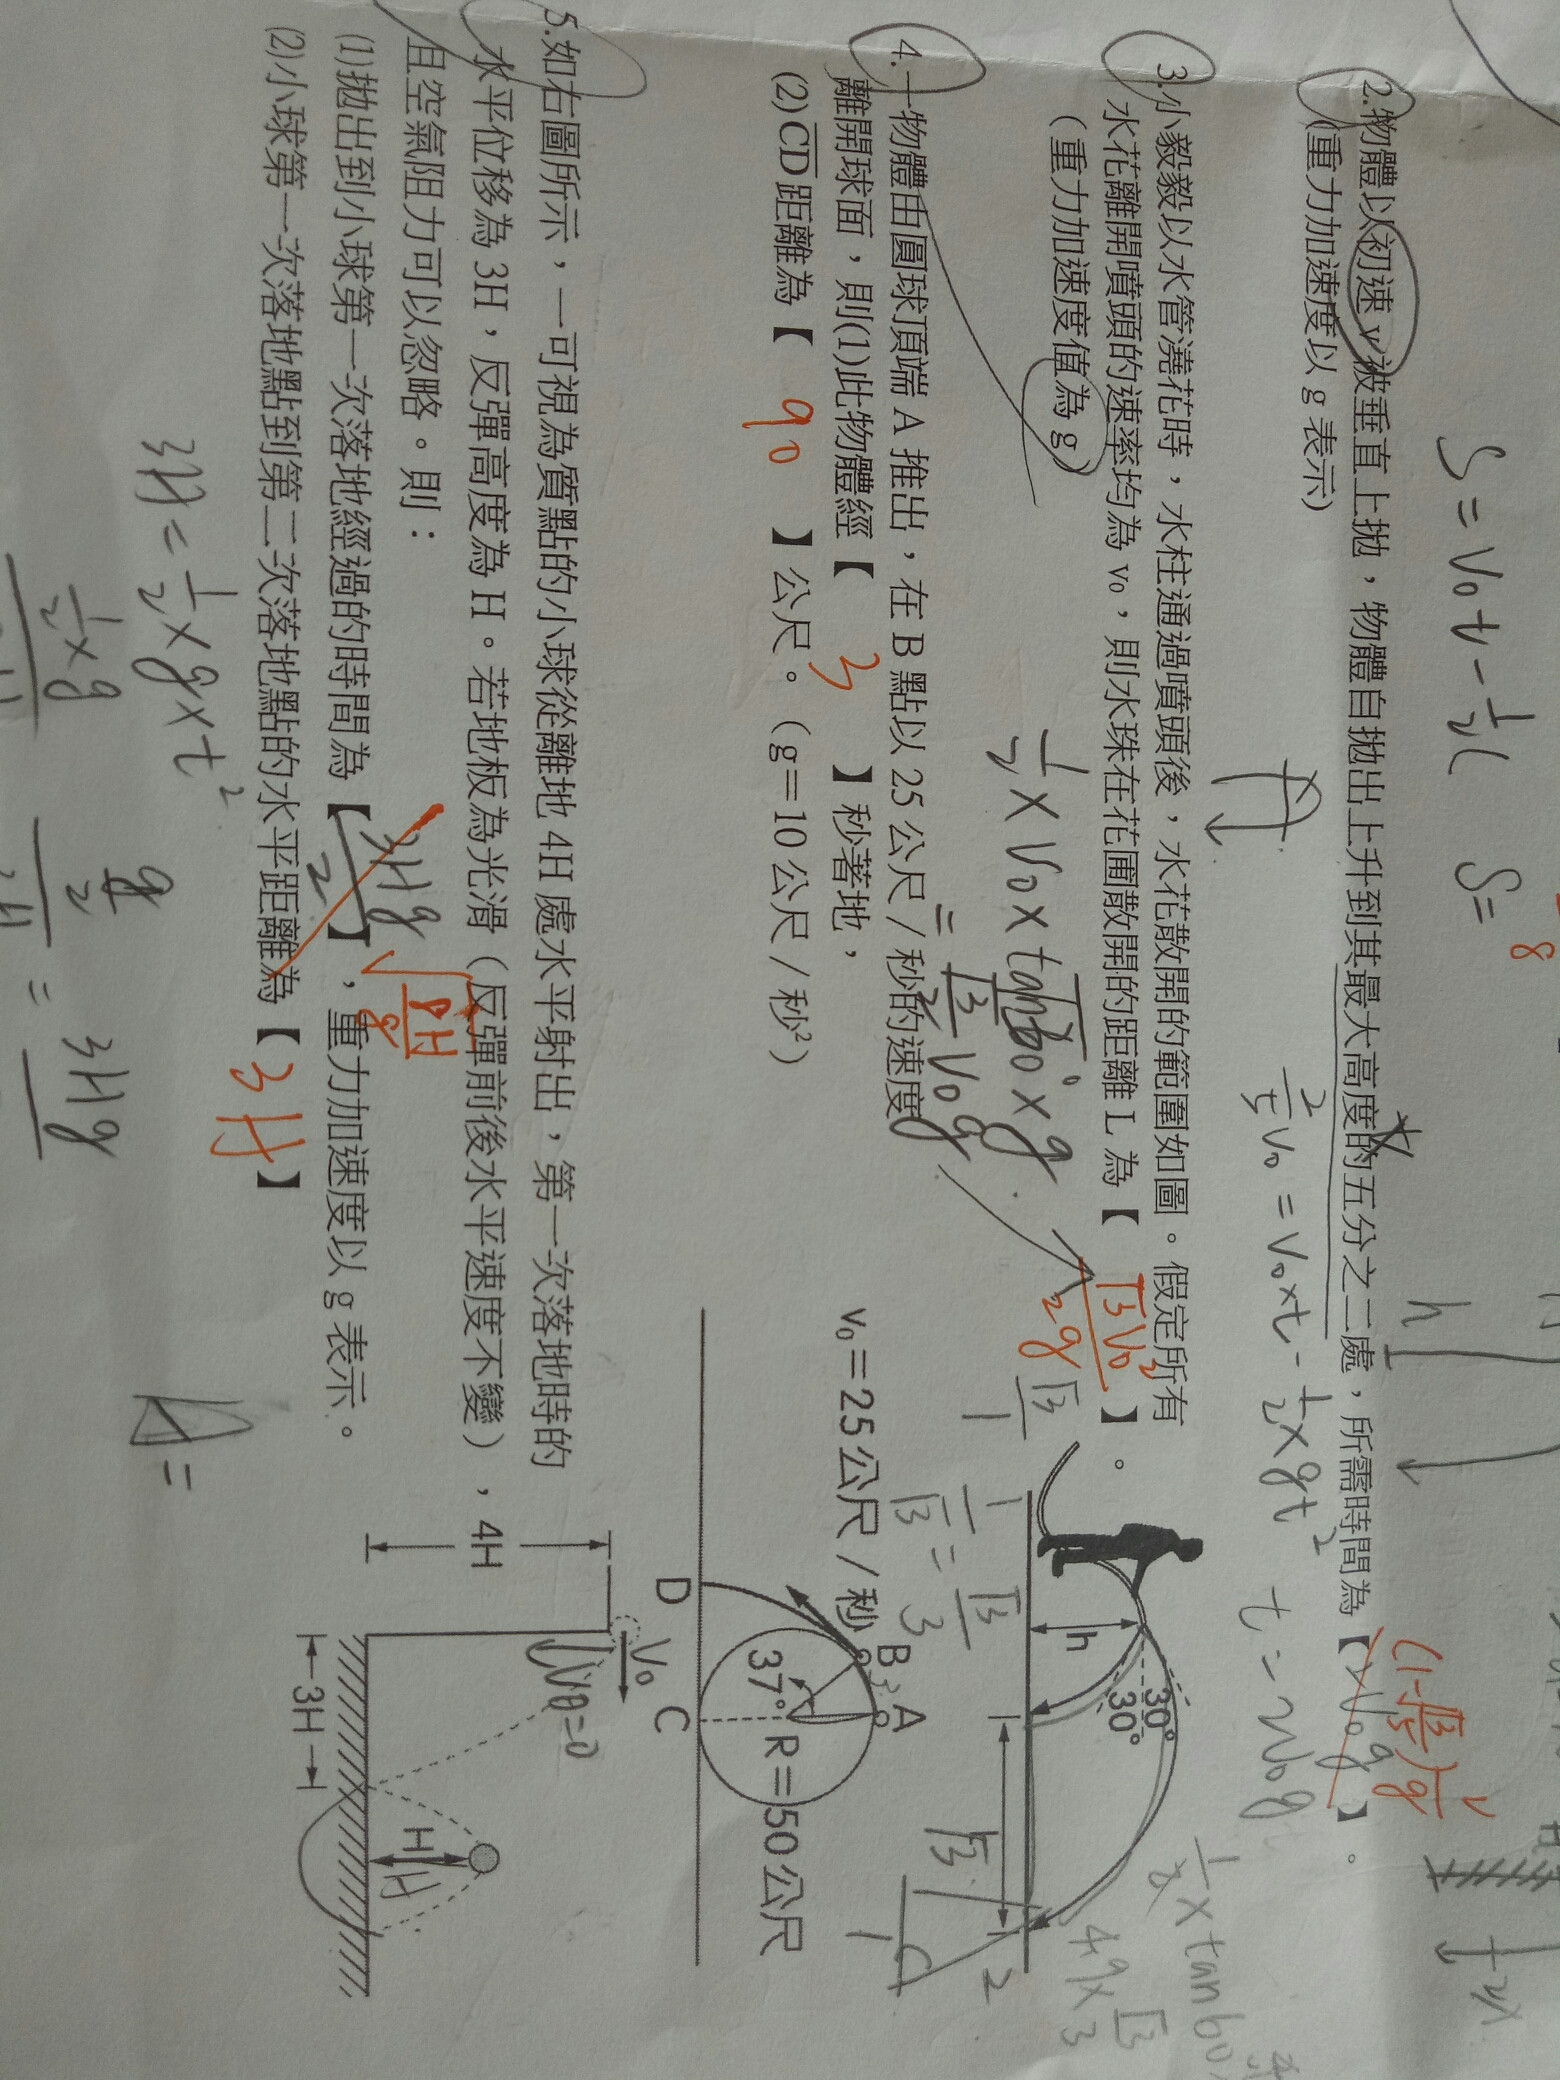 S = V₀t - ½(
S =
8
2.物體以初速 v 被垂直上拋，物體自拋出上升到其最大高度的五分之二處，所需時間為【 2V₀g 】。
(重力加速度以 g 表示)
(1-√3/√5) v/g
h
2/5 V₀ = V₀×t - ½×gt²
t = 2V₀g
3.小毅毅以水管澆花時，水柱通過噴頭後，水花散開的範圍如圖。假定所有
水花離開噴頭的速率均為 v₀，則水珠在花圃散開的距離 L 為【 √3V₀²/2g 】。
(重力加速度值為 g)
30°
30°
h
½×V₀×tan60°×g
= √3/2 V₀g
√3/1
1/√3 = √3/3
√3
1
2
4.一物體由圓球頂端 A 推出，在 B 點以 25 公尺/秒的速度
離開球面，則(1)此物體經【 3 】秒著地，
(2)CD 距離為【 90 】公尺。（g＝10 公尺/秒²）
v₀＝25公尺/秒
A
B
37°
R＝50公尺
D
C
5.如右圖所示，一可視為質點的小球從離地 4H 處水平射出，第一次落地時的
水平位移為 3H，反彈高度為 H。若地板為光滑（反彈前後水平速度不變），
且空氣阻力可以忽略。則：
(1)拋出到小球第一次落地經過的時間為【 3Hg/2 】，重力加速度以 g 表示。
√8H/g
(2)小球第一次落地點到第二次落地點的水平距離為【 3H 】
4H
V₀
Vθ=0
H
H
3H
3H = ½×g×t²
½×g
g/2
= 3Hg